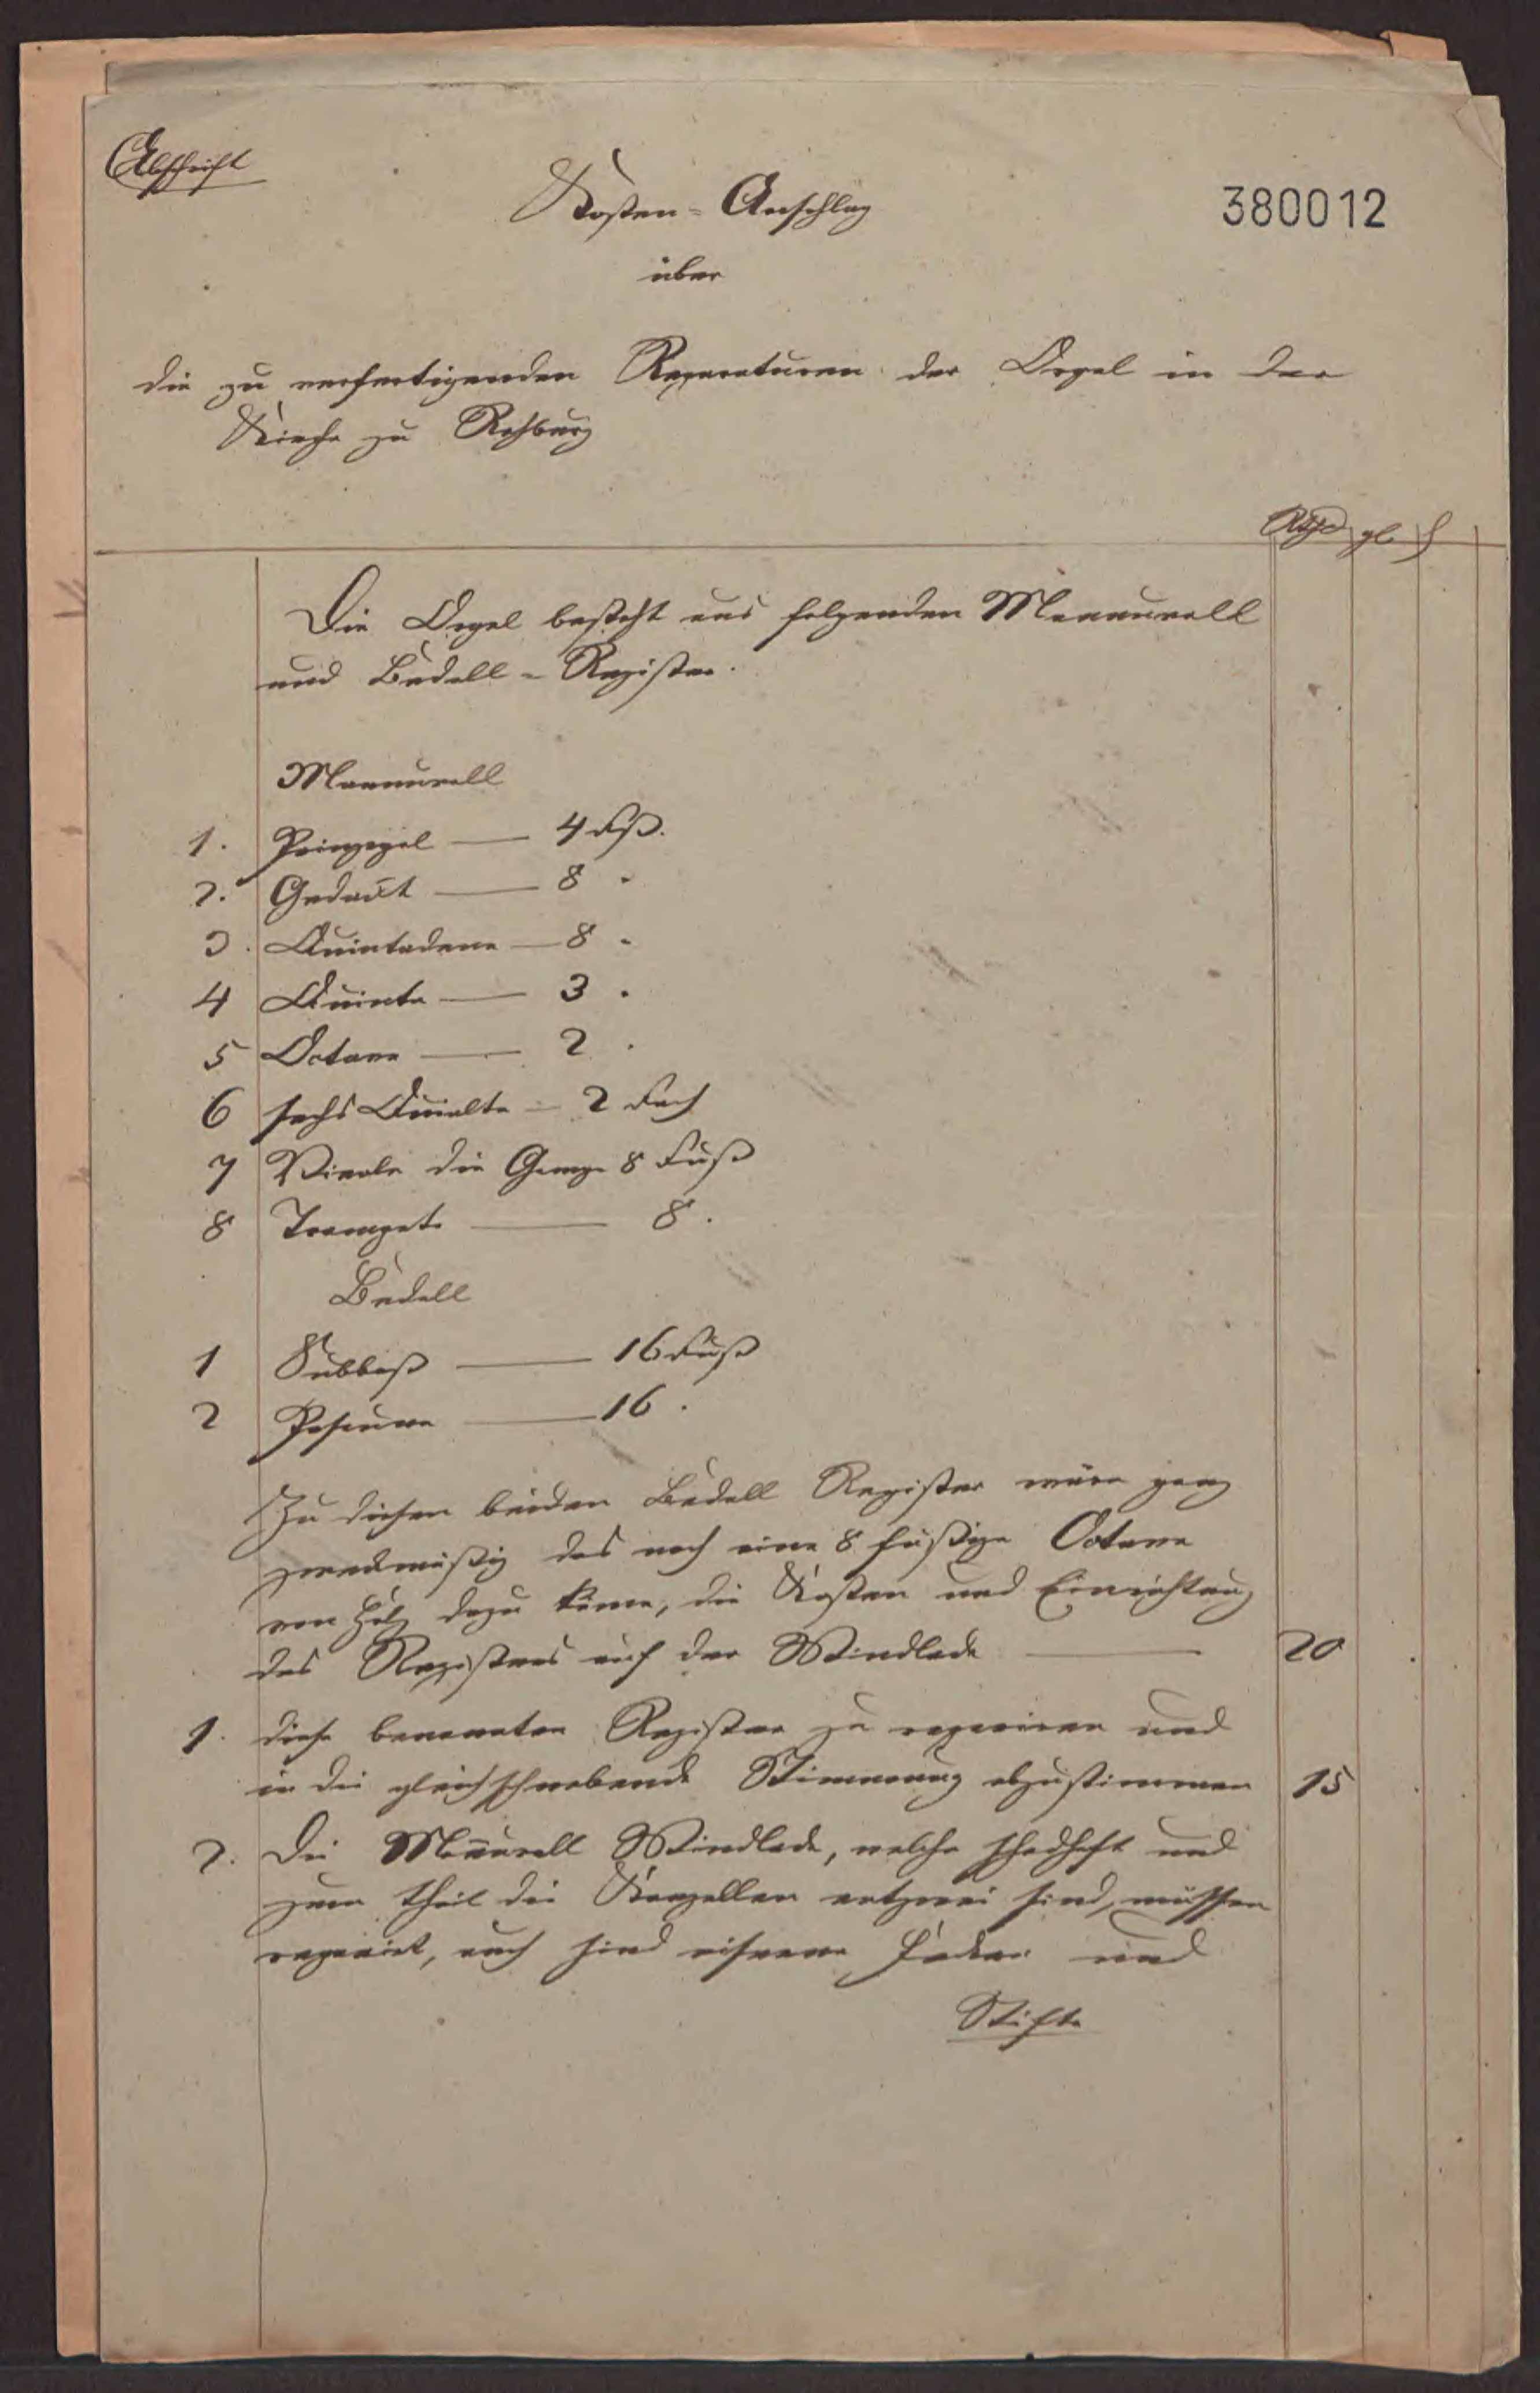 Abschrift
Kosten-Anschlag
380012
über
die zu verfertigenden Reparaturen der Orgel in der
Kirche zu Rehburg
Rthr gl ₰
Die Orgel besteht aus folgenden Mannuall
und Bedell-Register.
Mannuall
1. Prinzepal — 4 Fß.
2. Gedackt — 8 "
3. Quintadena — 8 "
4 Quinta — 3 "
5 Octave — 2 "
6 sechs Quialte — 2 Fach
7 Viola die Gamge 8 Fuß
8 Trompete — 8 "
Bedell
1 Subbaß — 16 Fuß
2 Posaune — 16 "
Zu diesen beiden Bedell Register wäre ganz
zweckmäßig das noch eine 8 füßige Octave
von Holz dazu käme, die Kosten und Einrichtung
des Registers auf der Windlade — 20
1. diese benannten Register zu repariren und
in die gleichschwebende Stimmung abzustimmen 15
2. Die Man̄uall Windlade, welche schadhaft und
zum theil die Kanzellen entzwei sind, müssen
reparirt, auch sind eiserne Federn und
Stifte